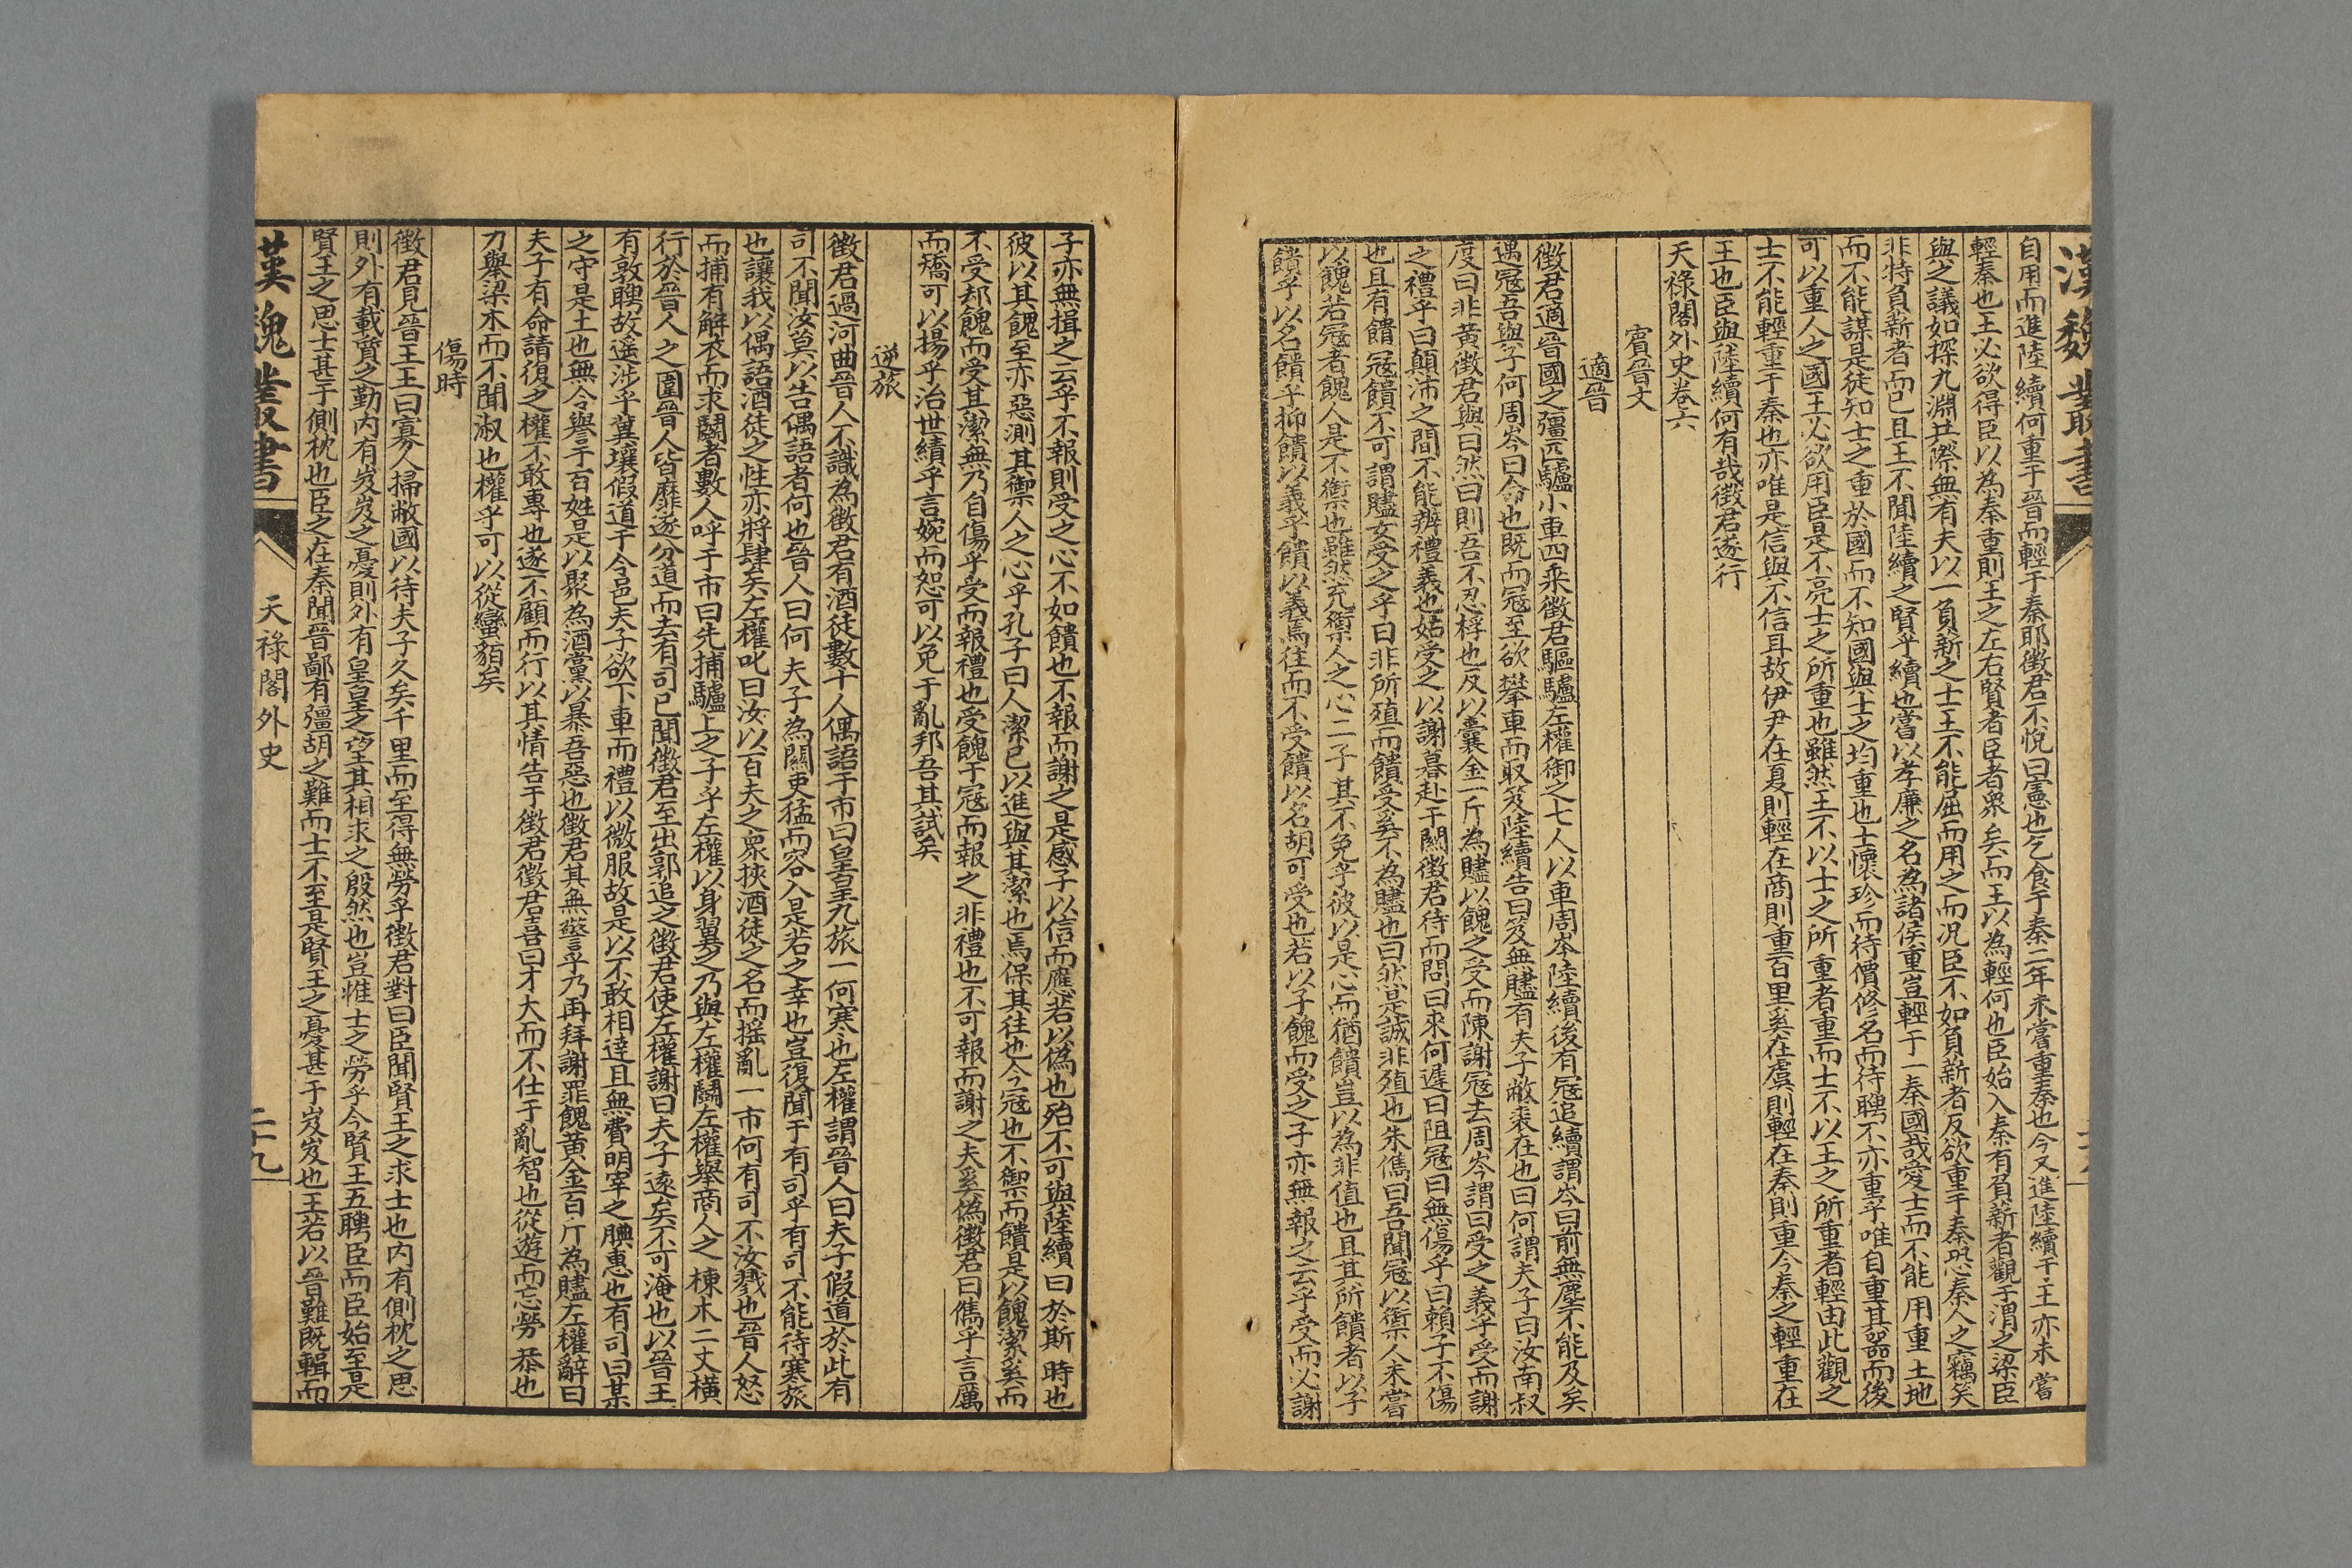 漢魏叢書
自用而進陸續何重于晉而輕于秦耶徵君不悅曰憲也乞食于秦二年未嘗重秦也今又進陸續于王亦未嘗
輕秦也王必欲得臣以為秦重則王之左右賢者臣者衆矣而王以為輕何也臣始入秦有負薪者觀于渭之梁臣
與之議如探九淵其際無有夫以一負薪之士王不能屈而用之而况臣不如負薪者反欲重于秦恐秦人之竊笑
非特負薪者而已且王不聞陸續之賢乎續也嘗以孝廉之名為諸侯重豈輕于一秦國哉愛士而不能用重土地
而不能謀是徒知士之重於國而不知國與士之均重也士懷珍而待價修名而待聘不亦重乎唯自重其器而後
可以重人之國王必欲用臣是不亮士之所重也雖然王不以士之所重者重而士不以王之所重者輕由此觀之
士不能輕重于秦也亦唯是信與不信耳故伊尹在夏則輕在商則重百里奚在虞則輕在秦則重今秦之輕重在
王也臣與陸續何有哉徵君遂行
天祿閣外史卷六
賓晉文
適晉
徵君適晉國之彊四驢小車四乘徵君驅驢左權御之七人以車周岑陸續後有冦追續謂岑曰前無塵不能及矣
遇冦吾與子何周岑曰命也既而冦至欲攀車而取笈陸續告曰笈無贐有夫子敝裘在也曰何謂夫子曰汝南叔
度曰非黃徵君與曰然曰則吾不忍桴也反以囊金一斤為贐以餽之受而陳謝冦去周岑謂曰受之義乎受而謝
之禮乎曰顛沛之間不能辨禮義也姑受之以謝暮赴于關徵君待而問曰來何遲曰阻冦曰無傷乎曰賴子不傷
也且有饋冦饋不可謂贐女受之乎曰非所殖而饋受奚不為贐也曰然是誠非殖也朱儁曰吾聞冦以禦人未嘗
以餽若冦者餽人是不禦也雖然充禦人之心二子其不免乎彼以是心而猶饋豈以為非值也且其所饋者以子
饋乎以名饋乎抑饋以義乎饋以義焉往而不受饋以名胡可受也若以子餽而受之子亦無報之云乎受而必謝
子亦無揖之云乎不報則受之心不如饋也不報而謝之是感子以信而應若以偽也殆不可與陸續曰於斯時也
彼以其餽至亦惡測其禦人之心乎孔子曰人潔己以進與其潔也焉保其往也今冦也不禦而饋是以餽潔奚而
不受却餽而受其潔無乃自傷乎受而報禮也受餽于冦而報之非禮也不可報而謝之夫奚偽徵君曰儁乎言厲
而矯可以揚乎治世續乎言婉而恕可以免于亂邦吾其試矣
逆旅
徵君過河曲晉人不識為徵君有酒徒數十人偶語于市曰皇皇九旅一何寒也左權謂晉人曰夫子假道於此有
司不聞汝莫以告偶語者何也晉人曰何夫子為關吏猛而容入是若之幸也豈復聞于有司乎有司不能待寒旅
也讓我以偶語酒徒之性亦將肆矣左權叱曰汝以百夫之衆挾酒徒之名而搖亂一市何有司不汝戮也晉人怒
而捕有解衣而求鬭者數人呼于市曰先捕驢上之子乎左權以身翼之乃與左權鬭左權舉商人之棟木二丈橫
行於晉人之圍晉人皆靡遂分道而去有司已聞徵君至出郭追之徵君使左權謝曰夫子遠矣不可淹也以晉王
有敦聘故遥涉乎冀壤假道于今邑夫子欲下車而禮以微服故是以不敢相達且無費明宰之腆惠也有司曰某
之守是土也無令與言于百姓是以聚為酒黨以暴吾惡也徵君其無警乎乃再拜謝罪餽黄金百斤為贐左權辭曰
夫子有命請復之權不敢專也遂不顧而行以其情告于徵君徵君喜曰才大而不仕于亂智也從遊而忘勞恭也
力舉梁木而不聞淑也權乎可以從蠻貊矣
傷時
徵君見晉王王曰寡人掃敝國以待夫子久矣千里而至得無勞乎徵君對曰臣聞賢王之求士也内有側枕之思
則外有載贄之勤内有岌岌之憂則外有皇皇之望其相求之殷然也豈惟士之勞乎今賢王五聘臣而臣始至是
賢王之思士甚于側枕也臣之在秦聞晉鄙有彊胡之難而士不至是賢王之憂甚于岌岌也王若以晉難既輯而
漢魏叢書
天祿閣外史
二十九